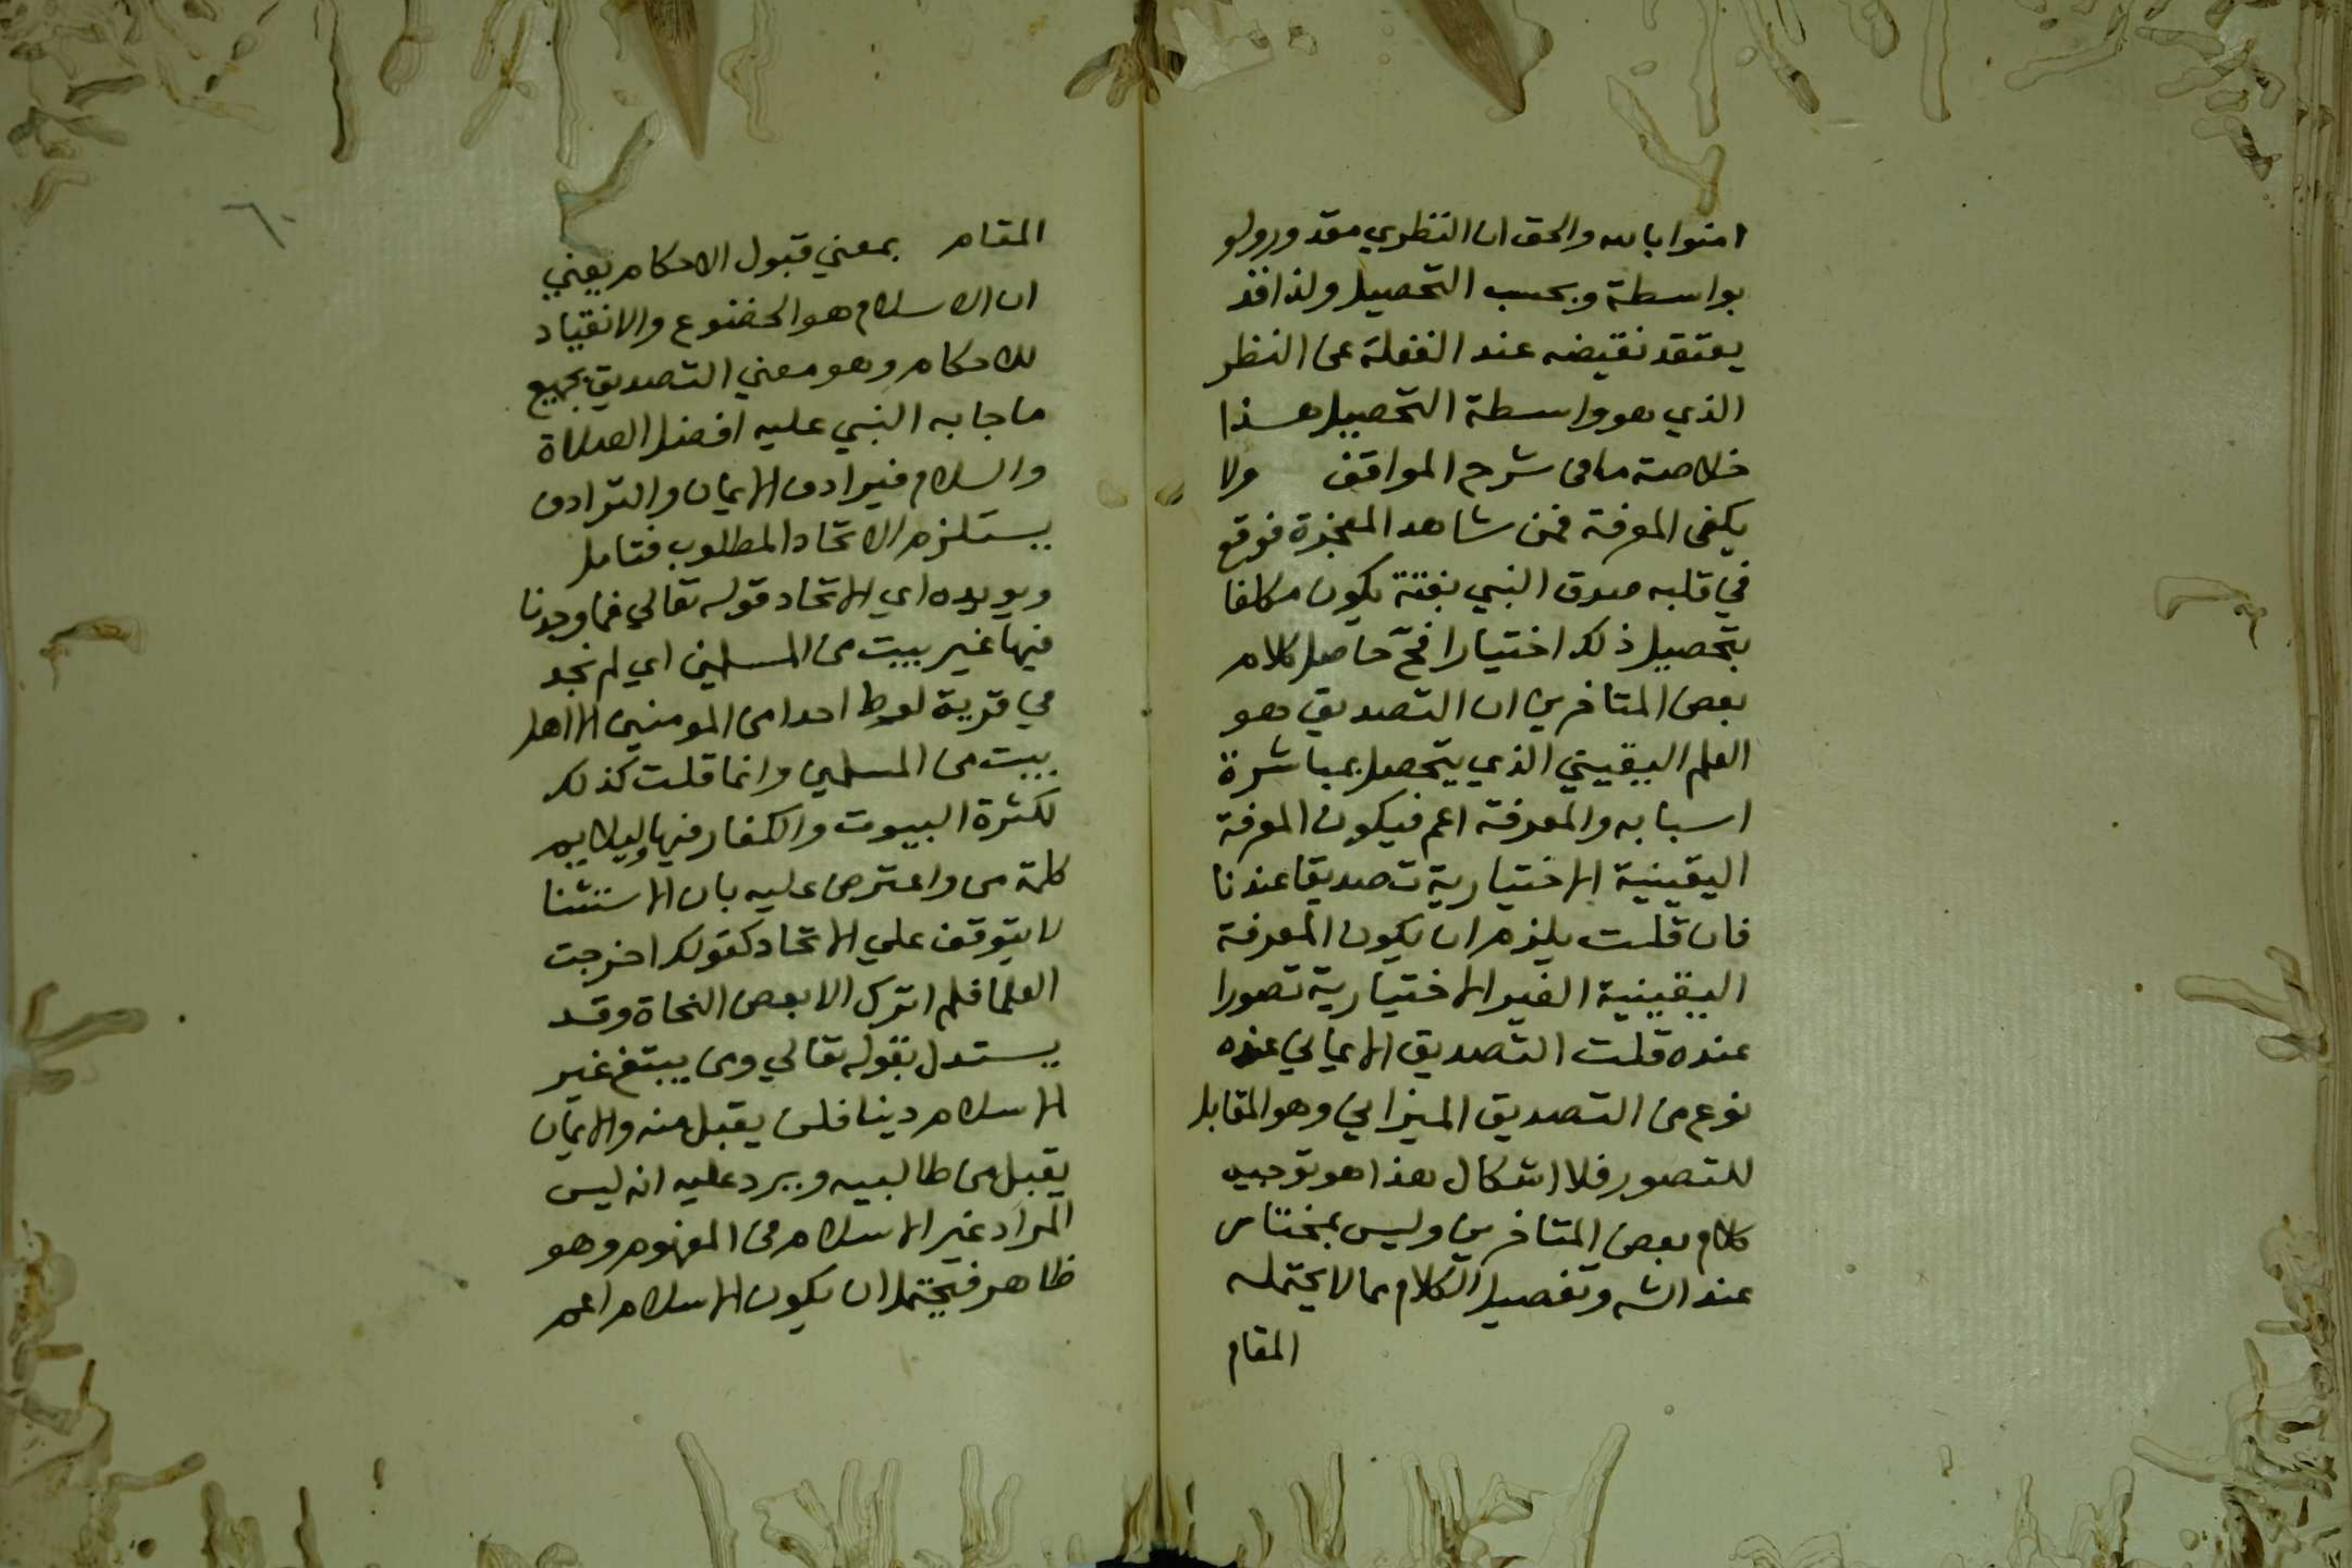 امنوا بالله والحق ان النظري مقدور ولو
بواسطة وبحسب التحصيل ولذا قد
يعتقد نقيضه عند الغفلة عن النظر
الذي هو واسطة التحصيل هذا
خلاصة ما في شرح المواقف ولا
يكفى المعرفة فمن شاهد المعجزة فوقع
في قلبه صدق النبي بغتة يكون مكلفا
بتحصيل ذلك اختيارا فح حاصل كلام
بعض المتاخرين ان التصديق هو
العلم اليقيني الذي يتحصل بمباشرة
اسبابه والمعرفة اعم فيكون المعرفة
اليقينية الاختيارية تصديقا عندنا
فان قلت يلزم ان يكون المعرفة
اليقينية الغير الاختيارية تصورا
عنده قلت التصديق الايماني عنده
نوع من التصديق الميزاني وهو المقابل
للتصور فلا اشكال هذا هو توجيه
كلام بعض المتاخرين وليس بمختار
عند الشه وتفصيل الكلام مما لا يحتمله
المقام
المقام بمعني قبول الاحكام يعني
ان الاسلام هو الخضوع والانقياد
للاحكام وهو معني التصديق بجميع
ما جا به النبي عليه افضل الصلاة
والسلام فيرادف الايمان والترادف
يستلزم الاتحاد المطلوب فتامل
ويويده اي الاتحاد قوله تعالي فما وجدنا
فيها غير بيت من المسلمين اي لم نجد
في قرية لوط احدا من المومنين الا اهل
بيت من المسلمين وانما قلت كذلك
لكثرة البيوت والكفار فيها وليلايم
كلمة من واعترض عليه بان الاستثنا
لا يتوقف علي الاتحاد كقولك اخرجت
العلما فلم اترك الا بعض النحاة وقد
يستدل بقوله تعالي ومن يبتغ غير
الاسلام دينا فلن يقبل منه والايمان
يقبل من طالبيه ويرد عليه انه ليس
المراد غير الاسلام في المفهوم وهو
ظاهر فيحتمل ان يكون الاسلام اعم